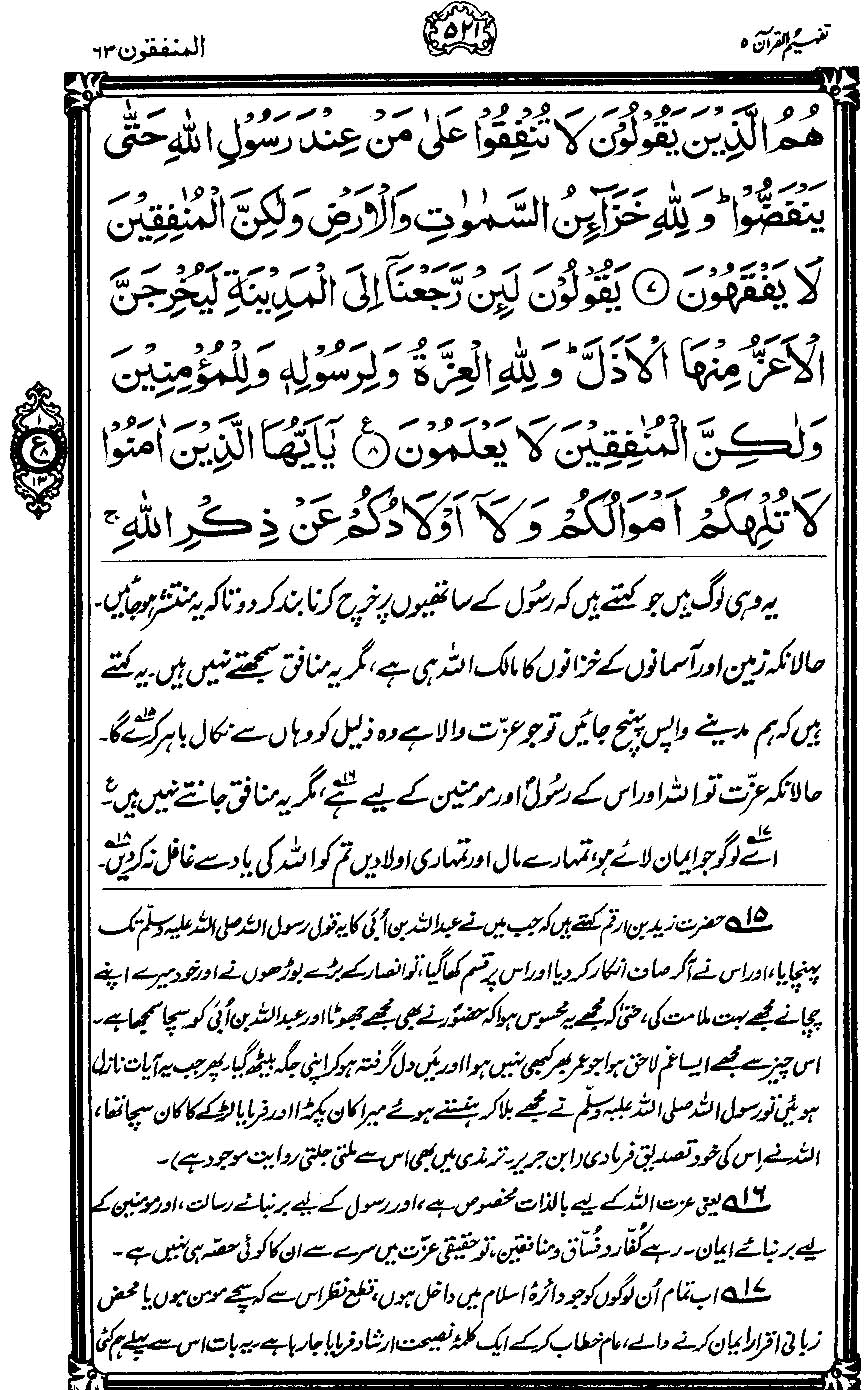 تفہیم القرآن ۵
۵۲۱
المنٰفقون ۶۳
هُمُ الَّذِيْنَ يَقُوْلُوْنَ لَا تُنْفِقُوْا عَلٰى مَنْ عِنْدَ رَسُوْلِ اللّٰهِ حَتّٰى
يَنْفَضُّوْا ؕ وَلِلّٰهِ خَزَآئِنُ السَّمٰوٰتِ وَالْاَرْضِ وَلٰكِنَّ الْمُنٰفِقِيْنَ
لَا يَفْقَهُوْنَ ﴿۷﴾ يَقُوْلُوْنَ لَئِنْ رَّجَعْنَآ اِلَى الْمَدِيْنَةِ لَيُخْرِجَنَّ
الْاَعَزُّ مِنْهَا الْاَذَلَّ ؕ وَلِلّٰهِ الْعِزَّةُ وَلِرَسُوْلِهٖ وَلِلْمُؤْمِنِيْنَ
وَلٰكِنَّ الْمُنٰفِقِيْنَ لَا يَعْلَمُوْنَ ﴿۸﴾ ع يٰۤاَيُّهَا الَّذِيْنَ اٰمَنُوْا
۱
ع
۸
۱۳
لَا تُلْهِكُمْ اَمْوَالُكُمْ وَلَآ اَوْلَادُكُمْ عَنْ ذِكْرِ اللّٰهِ ۚ
یہ وہی لوگ ہیں جو کہتے ہیں کہ رسُول کے ساتھیوں پر خرچ کرنا بند کر دو تاکہ یہ منتشر ہو جائیں۔
حالانکہ زمین اور آسمانوں کے خزانوں کا مالک اللہ ہی ہے، مگر یہ منافق سمجھتے نہیں ہیں۔ یہ کہتے
ہیں کہ ہم مدینے واپس پہنچ جائیں تو جو عزّت والا ہے وہ ذلیل کو وہاں سے نکال باہر کرے گا۱۵۔
حالانکہ عزّت تو اللہ اور اس کے رسُولؐ اور مومنین کے لیے ہے۱۶، مگر یہ منافق جانتے نہیں ہیں۔ ع
اے۱۷ لوگو جو ایمان لائے ہو، تمہارے مال اور تمہاری اولادیں تم کو اللہ کی یاد سے غافل نہ کر دیں۱۸۔
۱۵ حضرت زید بن ارقم کہتے ہیں کہ جب میں نے عبداللہ بن اُبَیّ کا یہ قول رسول اللہ صلی اللہ علیہ وسلّم تک
پہنچایا، اور اس نے آکر صاف انکار کر دیا اور اس پر قسم کھا گیا، تو انصار کے بڑے بوڑھوں نے اور خود میرے اپنے
چچا نے مجھے بہت ملامت کی، حتیٰ کہ مجھے یہ محسوس ہوا کہ حضورؐ نے بھی مجھے جھوٹا اور عبداللہ بن اُبَیّ کو سچا سمجھا ہے۔
اس چیز سے مجھے ایسا غم لاحق ہوا جو عمر بھر کبھی نہیں ہوا اور میں دل گرفتہ ہو کر اپنی جگہ بیٹھ گیا۔ پھر جب یہ آیات نازل
ہوئیں تو رسول اللہ صلی اللہ علیہ وسلّم نے مجھے بلا کر ہنستے ہوئے میرا کان پکڑا اور فرمایا لڑکے کا کان سچا تھا،
اللہ نے اِس کی خود تصدیق فرما دی (ابن جریر۔ ترمذی میں بھی اس سے ملتی جلتی روایت موجود ہے)۔
۱۶ یعنی عزت اللہ کے لیے بالذات مخصوص ہے، اور رسول کے لیے بر بنائے رسالت، اور مومنین کے
لیے بر بنائے ایمان۔ رہے کُفّار و فُسّاق و منافقین، تو حقیقی عزّت میں سرے سے ان کا کوئی حصّہ ہی نہیں ہے۔
۱۷ اب تمام اُن لوگوں کو جو دائرۂ اسلام میں داخل ہوں، قطع نظر اس سے کہ سچے مومن ہوں یا محض
زبانی اقرارِ ایمان کرنے والے، عام خطاب کر کے ایک کلمۂ نصیحت ارشاد فرمایا جا رہا ہے۔ یہ بات اس سے پہلے ہم کئی